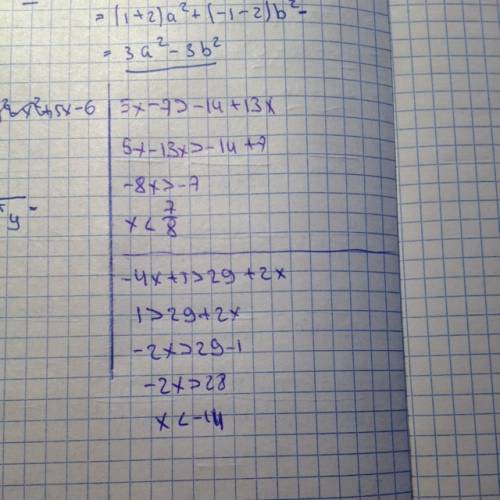 = (1+2)a²+(-1-2)b²=
= 3a²-3b²
+5x-6
5x-7>-14+13x
5x-13x>-14+7
-8x>-7
x<7/8
y=
-4x+5>29+2x
1>29+2x
-2x>29-1
-2x>28
x<-14